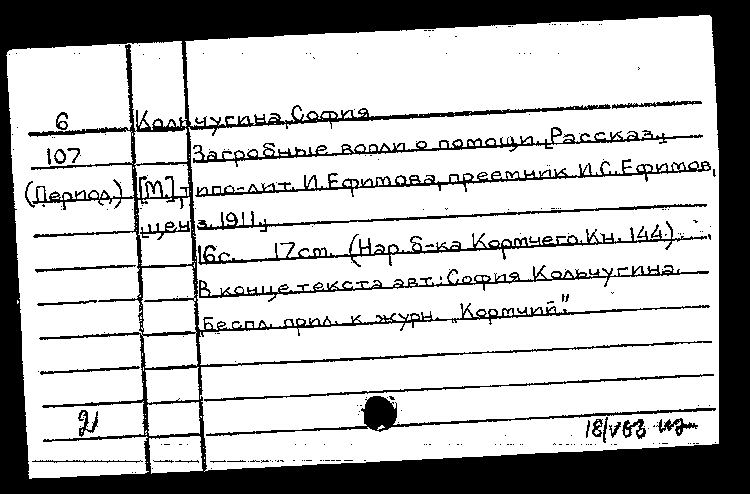 6 Кольчугина, София
107 Загробные вопли о помощи. [Рассказ.]
(Период.) [М.], типо-лит. И. Ефимова, преемник И.С. Ефимов,
ценз. 1911.
16с. 17см. (Нар. б-ка Кормчего. Кн. 144).
В конце текста авт.: София Кольчугина.
Беспл. прил. к журн. „Кормчий".
21
18/VIII 63